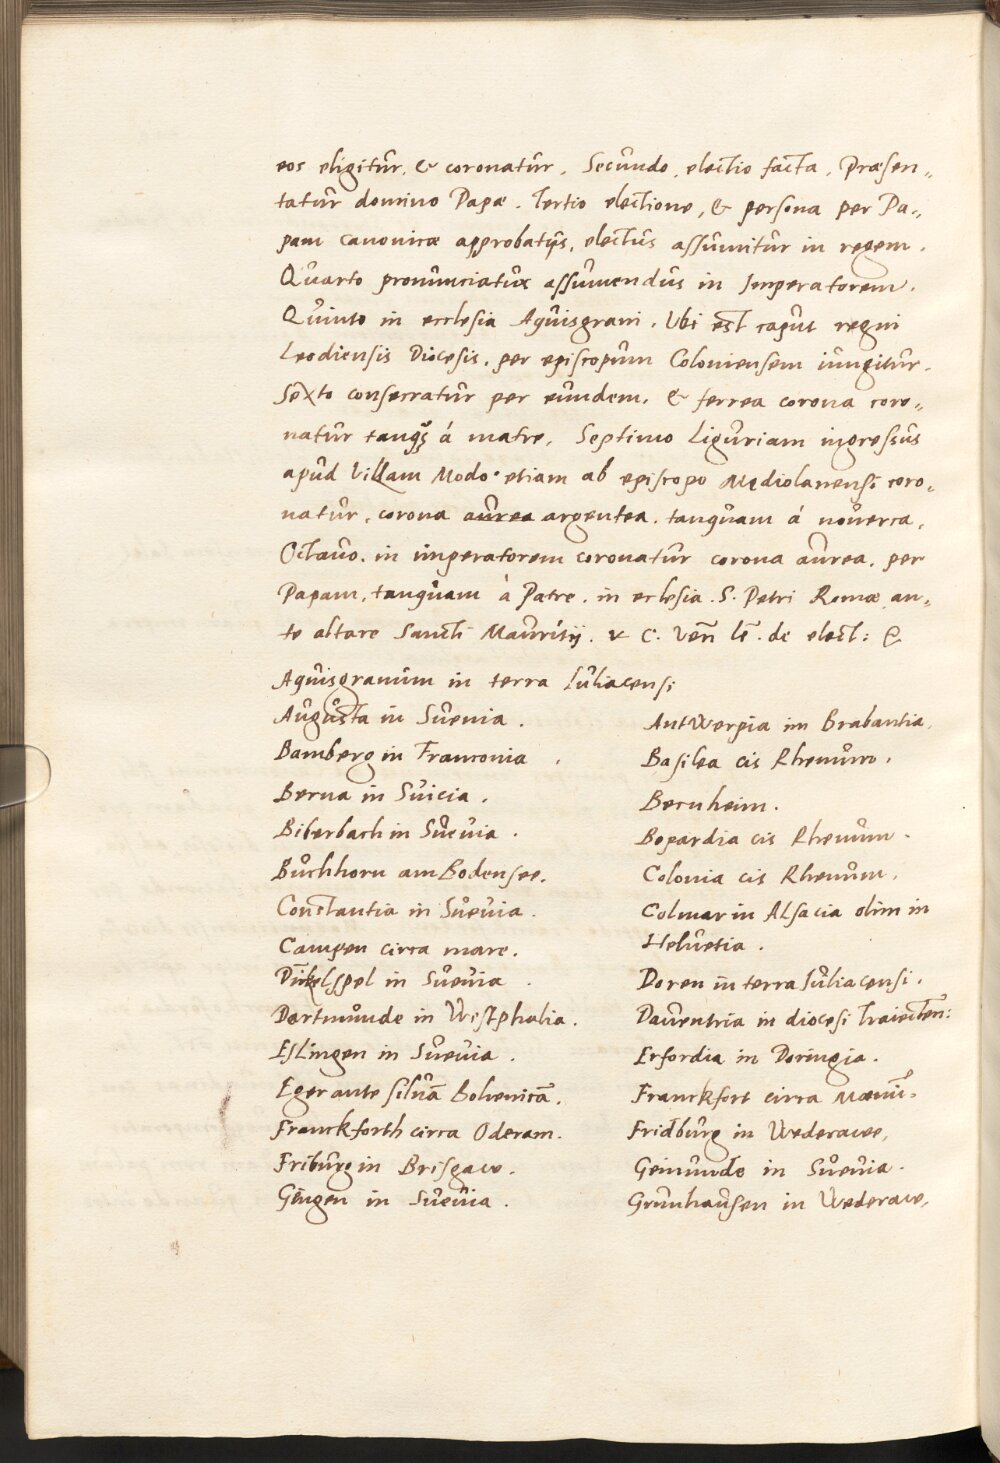 eos eligitur, & coronatur. Secundo, electio facta, Præsen„
tatur domino Papæ. Tertio electione, & persona per Pa„
pam canonicæ approbatis, electus assumitur in regem.
Quarto pronunciatur assumendus in Imperatorem.
Quinto in ecclesia Aquisgrani. Ubi est caput regni
Leodiensis Diocesis, per episcopum Coloniensem iungitur.
Sexto consecratur per eundem, & ferrea corona coro„
natur tanqȝ á matre, Septimo Liguriam ingressus
apud Villam Modo etiam ab episcopo Mediolanensi coro„
natur, corona aurea argentea, tanquam á nouerca,
Octauo, in imperatorem coronatur corona aurea, per
Papam, tanquam à Patre, in eclesia S. Petri Romæ an„
te altare Sancti Mauritij. v C. Ven̄ lē. de elect: &
Aquisgranum in terra Iuliacensi
Augusta in Sueuia.
Antwerpia im Brabantia.
Bamberg in Franconia.
Basilea cis Rhenum.
Berna in Suicia.
Bernheim.
Biberbach in Sueuia.
Bopardia cis Rhenum.
Buchhorn am Bodensee.
Colonia cis Rhenum.
Constantia in Sueuia.
Colmar in Alsacia olim in
Heluetia.
Campen circa mare.
Dinkelspel in Sueuia.
Doren in terra Iuliacensi.
Dortmunde in Westphalia.
Dauentria in diocesi Traiecten:
Eslingen in Sueuia.
Erfordia in Doringia.
Eger ante siluā Bohenicā.
Franckfort circa Mænū.
Franckforth circa Oderam.
Fridburg in Wederawe,
Friburg in Brisgaw.
Gemunde in Sueuia.
Gingen in Sueuia.
Grunhausen in Wederaw,